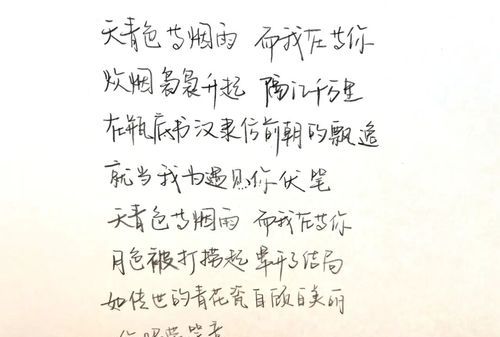 天青色等烟雨 而我在等你
炊烟袅袅升起 隔江千万里
在瓶底书汉隶仿前朝的飘逸
就当我为遇见你伏笔
天青色等烟雨 而我在等你
月色被打捞起 晕开了结局
如传世的青花瓷自顾自美丽
你眼带笑意